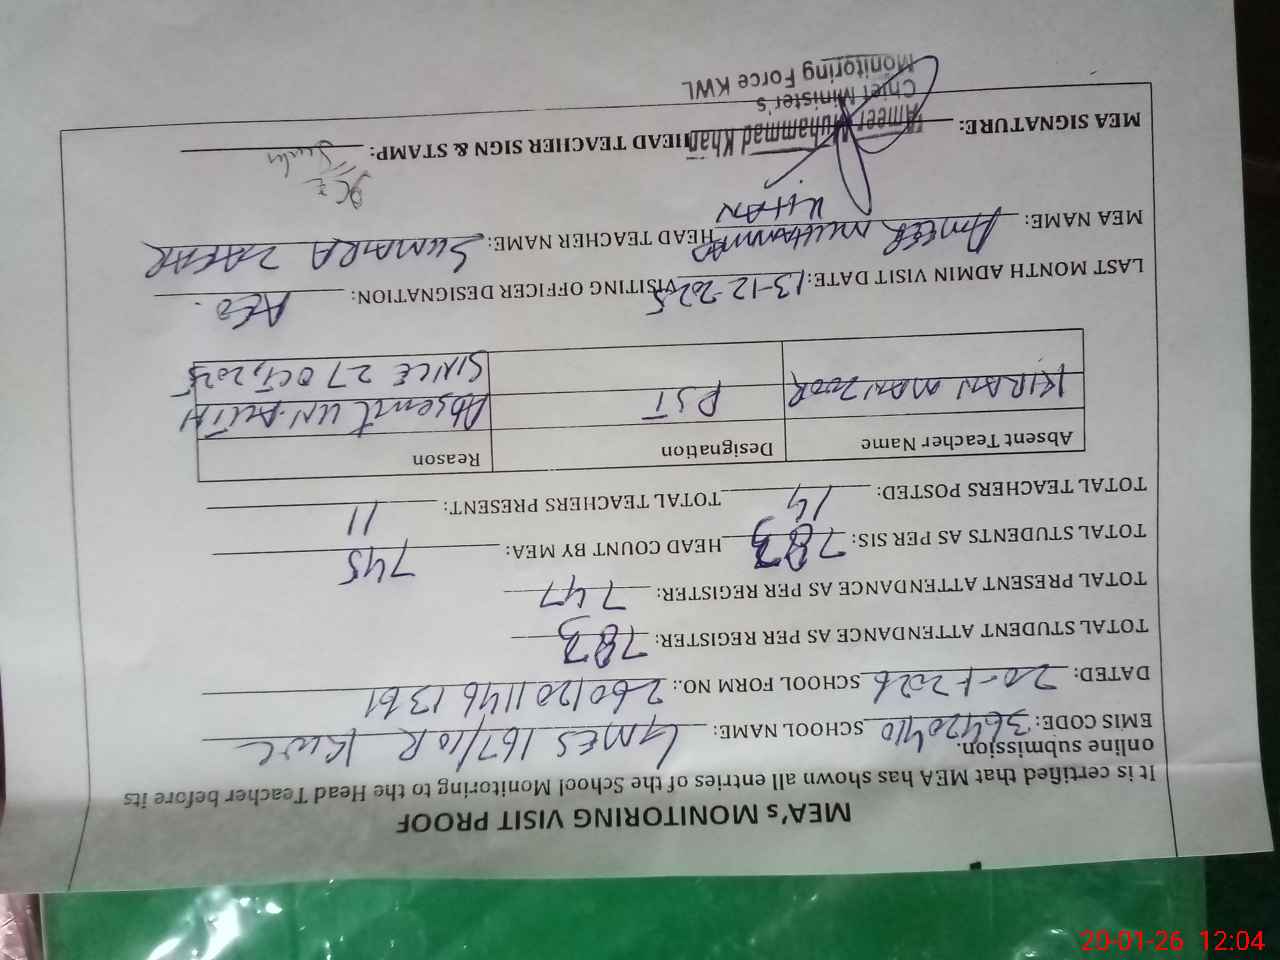 MEA's MONITORING VISIT PROOF
It is certified that MEA has shown all entries of the School Monitoring to the Head Teacher before its
online submission.
EMIS CODE: 36420410 SCHOOL NAME: GMES 167/10R KWL
DATED: 20-1-2026 SCHOOL FORM NO.: 26012011461361
TOTAL STUDENT ATTENDANCE AS PER REGISTER: 783
TOTAL PRESENT ATTENDANCE AS PER REGISTER: 747
TOTAL STUDENTS AS PER SIS: 783 HEAD COUNT BY MEA: 745
TOTAL TEACHERS POSTED: 14 TOTAL TEACHERS PRESENT: 11
Absent Teacher Name Designation Reason
KIRAN MANZOOR PST Absent UN-AUTH
SINCE 27 OCT, 2025
LAST MONTH ADMIN VISIT DATE: 13-12-2025 VISITING OFFICER DESIGNATION: AEO.
MEA NAME: AMEER MUHAMMAD KHAN HEAD TEACHER NAME: SUMARA ZAFAR
MEA SIGNATURE: HEAD TEACHER SIGN & STAMP:
Ameer Muhammad Khan
Chief Minister's
Monitoring Force KWL
20-01-26 12:04